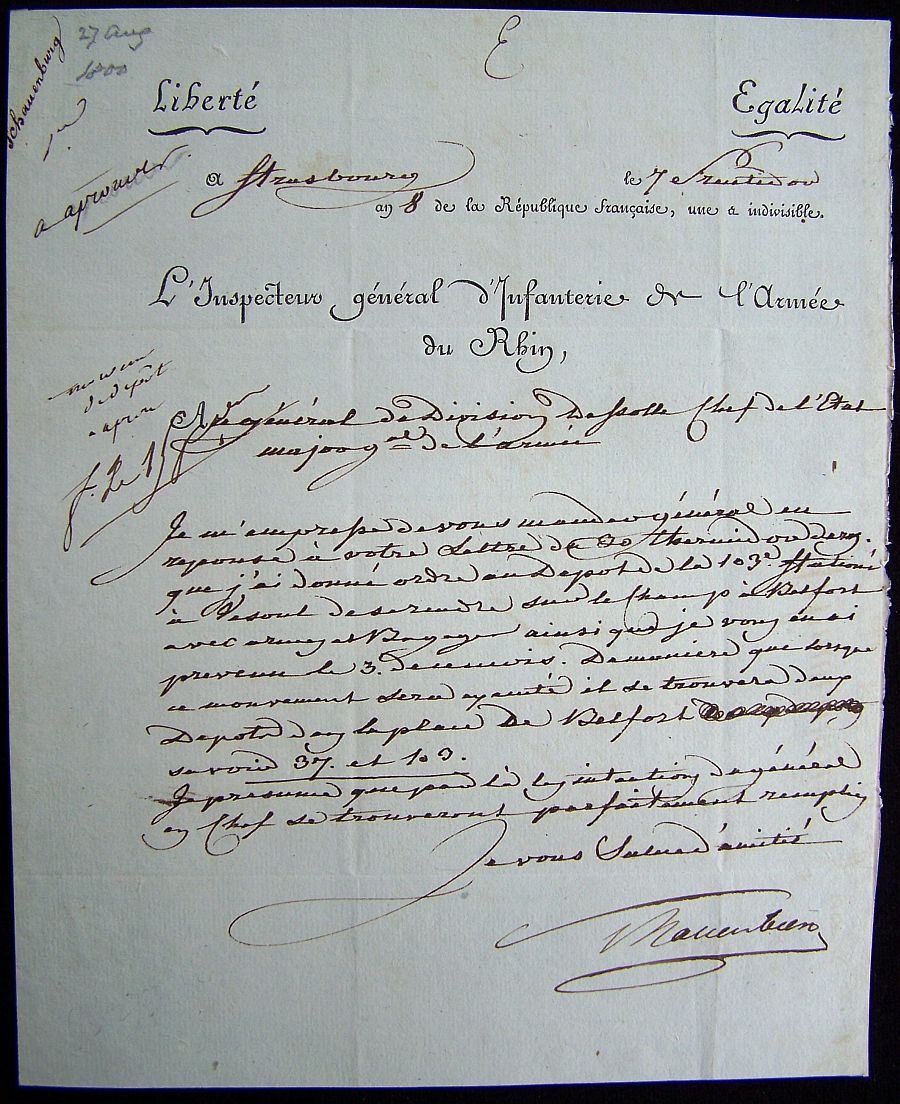 E
27 Aug
1800
Schauenburg
Liberté
Egalité
a Strasbourg le 7 fructidor
an 8 de la République française, une & indivisible.
a aprouver.
L'Inspecteur général d'Infanterie de l'Armée
du Rhin,
de dépôt
Au général de Division Dessolle Chef de l'Etat
major gal de l'armée
Je m'empresse de vous mander général en
reponse à votre Lettre du 30 thermidor dern.
que j'ai donné ordre au Depot de la 103e. stationé
à Vesoul de se rendre sur le Champ à Belfort
avec armes et Bagages ainsi que je vous en ai
prevenu le 3. de ce mois. De maniere que lorsque
ce mouvement sera executé il se trouvera deux
Depots dans la place de Belfort
savoir 37. et 103.
Je presume que par là les intentions du général
en Chef se trouveront parfaitement remplies
Je vous Salue d'amitié
Schauenburg